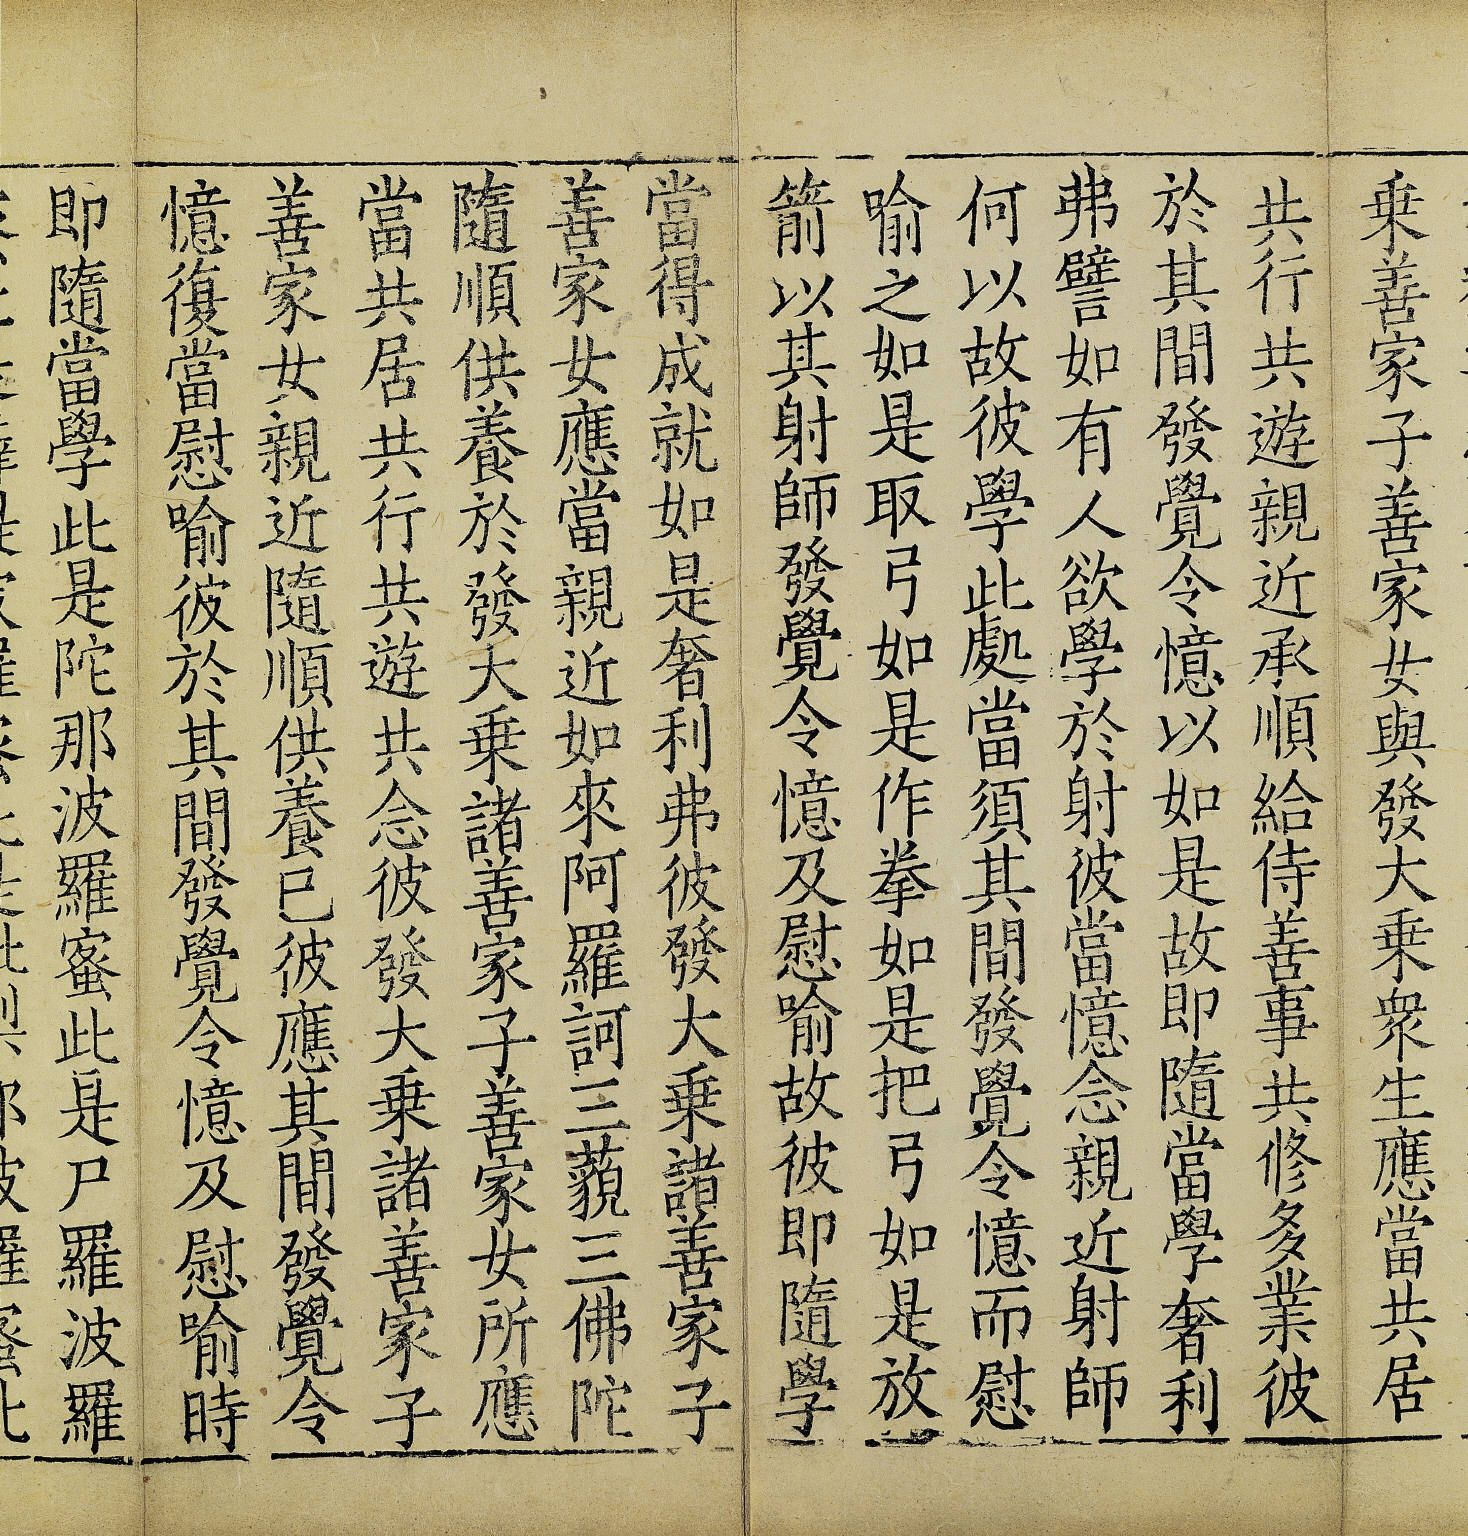 乗善家子善家女與發大乗衆生應當共居
共行共遊親近承順給侍善事共修多業彼
於其間發覺令憶以如是故即隨當學奢利
弗譬如有人欲學於射彼當憶念親近射師
何以故彼學此處當須其間發覺令憶而慰
喻之如是取弓如是作拳如是把弓如是放
箭以其射師發覺令憶及慰喻故彼即隨學
當得成就如是奢利弗彼發大乗諸善家子
善家女應當親近如來阿羅訶三藐三佛陀
隨順供養於發大乗諸善家子善家女所應
當共居共行共遊共念彼發大乗諸善家子
善家女親近隨順供養已彼應其間發覺令
憶復當慰喻彼於其間發覺令憶及慰喻時
即隨當學此是陀那波羅蜜此是尸羅波羅